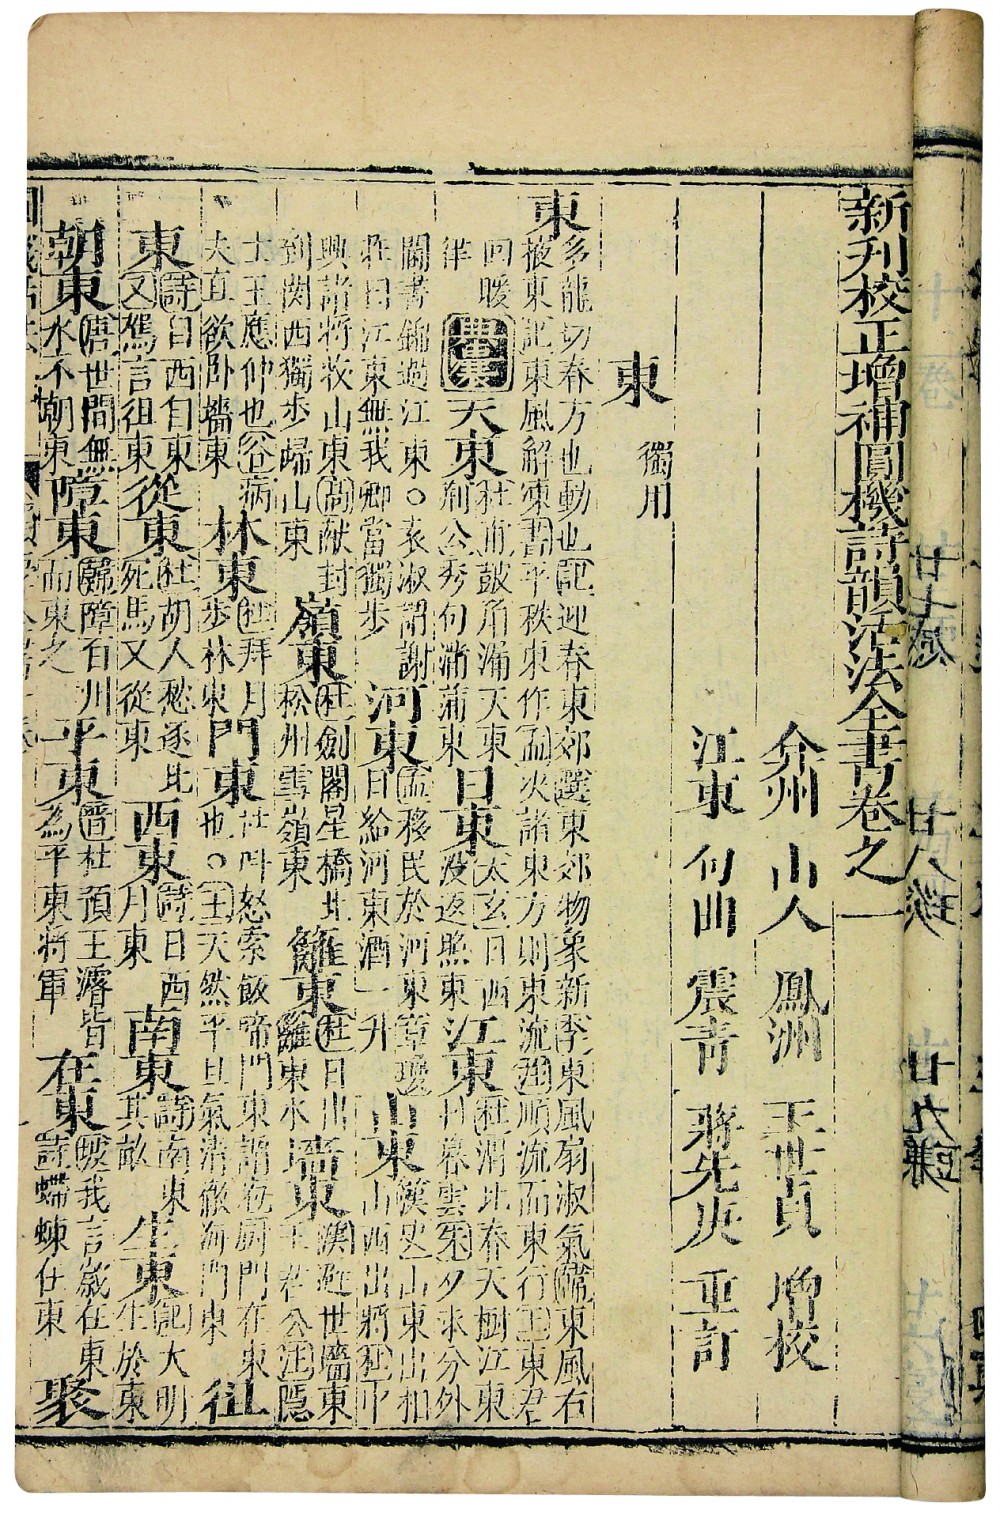 新刊校正增補圓機詩韻活法全書卷之一
弇州 山人 鳳洲 王世貞 增校
江東 句曲 震青 蔣先庚 重訂
東 獨用
東 多龍切春方也動也記迎春東郊選東郊物象新李東風扇淑氣韓東風右
掖東記東風解凍書平秩東作孟決諸東方則東流莊順流而東行王東君
回暖 天東 杜甫鼓角滿天東 日東 太玄日西 江東 杜渭北春天樹江東
荆公秀句滿蒲東 没返照東 日暮雲朱夕求分外
關書錦過江東○袁淑謂謝 河東 孟移民於河東章瓊 山東 漢史山東出相
莊曰江東無我卿當獨步 日給河東酒一升 山西出將杜下
興諸將收山東高献封 嶺東 杜劍閣星橋北 籬東 杜日出 墻東 漢避世墻東
到関西獨步歸山東 松州雪嶺東 籬東水 王君公注隱
士王應仲也谷病 林東 杜拜月 門東 杜叫怒索飯啼門東謂庖厨門在東
夫直欲卧墻東 步林東 也○王天然平旦氣清徹海門東 徂
東 詩曰西自東 從東 杜胡人愁逐北 西東 詩曰西 南東 詩南東 生東 記大明
又駕言徂東 死馬又從東 月東 其畝 生於東
朝東 唐世間無 障東 韓障百川 平東 晋杜預王濬皆 在東 歐我言歲在東 聚
水不朝東 而東之 為平東將軍 詩蝃蝀在東